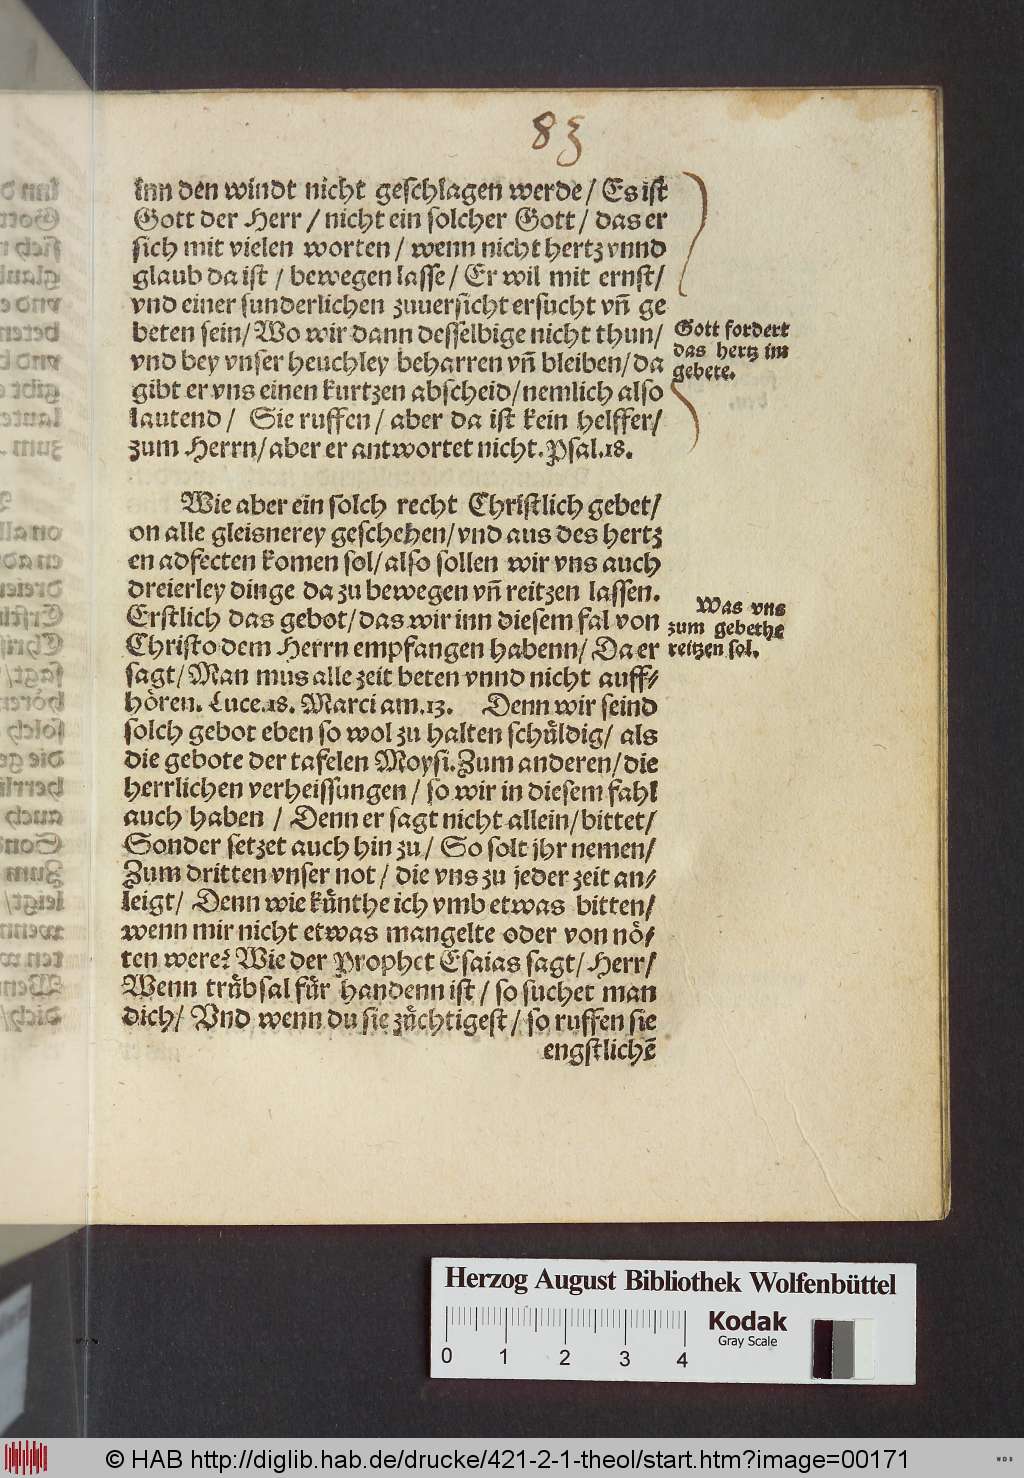 83
Inn den windt nicht geschlagen werde/ Es ist
Gott der Herr / nicht ein solcher Gott/ das er
sich mit vielen worten / wenn nicht hertz vnnd
glaub da ist / bewegen lasse/ Er wil mit ernst/
vnd einer sunderlichen zuuersicht ersucht vñ ge
beten sein/ Wo wir dann desselbige nicht thun/
vnd bey vnser heuchley beharren vñ bleiben/ da
gibt er vns einen kurtzen abscheid/ nemlich also
lautend / Sie ruffen / aber da ist kein helffer/
zum Herrn/ aber er antwortet nicht. Psal.18.
Gott fordert
das hertz im
gebete.
Wie aber ein solch recht Christlich gebet/
on alle gleisnerey geschehen/ vnd aus des hertz
en adfecten komen sol/ also sollen wir vns auch
dreierley dinge da zu bewegen vñ reitzen lassen.
Erstlich das gebot/ das wir inn diesem fal von
Christo dem Herrn empfangen habenn/ Da er
sagt/ Man mus alle zeit beten vnnd nicht auff⸗
hören. Luce.18. Marci am.13. Denn wir seind
solch gebot eben so wol zu halten schüldig/ als
die gebote der tafelen Moysi. Zum anderen/ die
herrlichen verheissungen / so wir in diesem fahl
auch haben / Denn er sagt nicht allein/ bittet/
Sonder setzet auch hin zu/ So solt jhr nemen/
Zum dritten vnser not / die vns zu jeder zeit an⸗
leigt/ Denn wie künthe ich vmb etwas bitten/
wenn mir nicht etwas mangelte oder von nö⸗
ten were? Wie der Prophet Esaias sagt/ Herr/
Wenn trübsal für handenn ist / so suchet man
dich/ Vnd wenn du sie zächtigest / so ruffen sie
engstlichē
Was vns
zum gebethe
reitzen sol.
Herzog August Bibliothek Wolfenbüttel
0 1 2 3 4
Kodak
Gray Scale
© HAB http://diglib.hab.de/drucke/421-2-1-theol/start.htm?image=00171